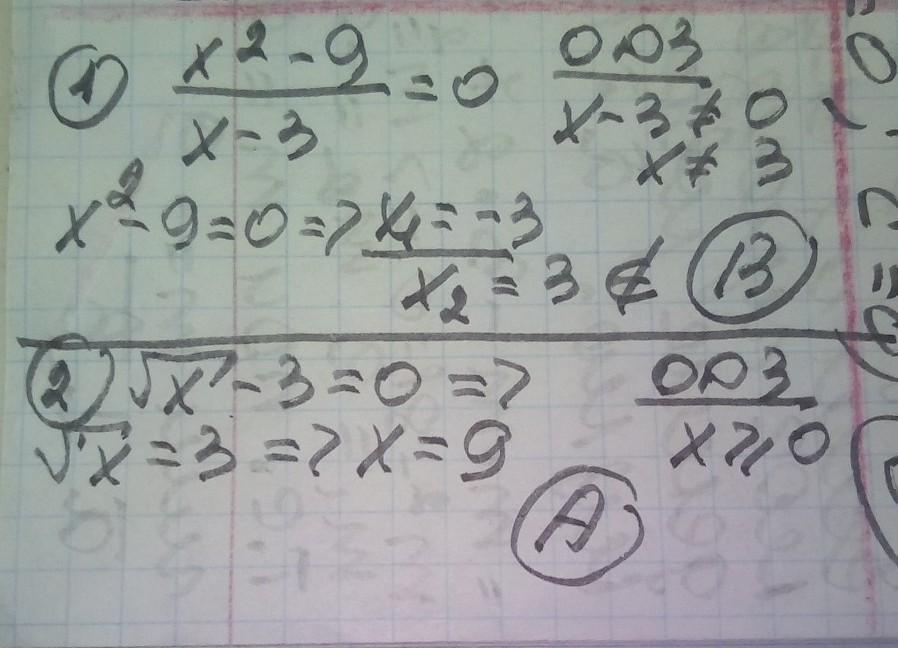 ① x² - 9 / x - 3 = 0   ОДЗ
x - 3 ≠ 0
x ≠ 3
x² - 9 = 0 => x₁ = -3
x₂ = 3 ∉   Ⓑ
② √x - 3 = 0 =>   ОДЗ
√x = 3 => x = 9   x ⩾ 0
Ⓐ